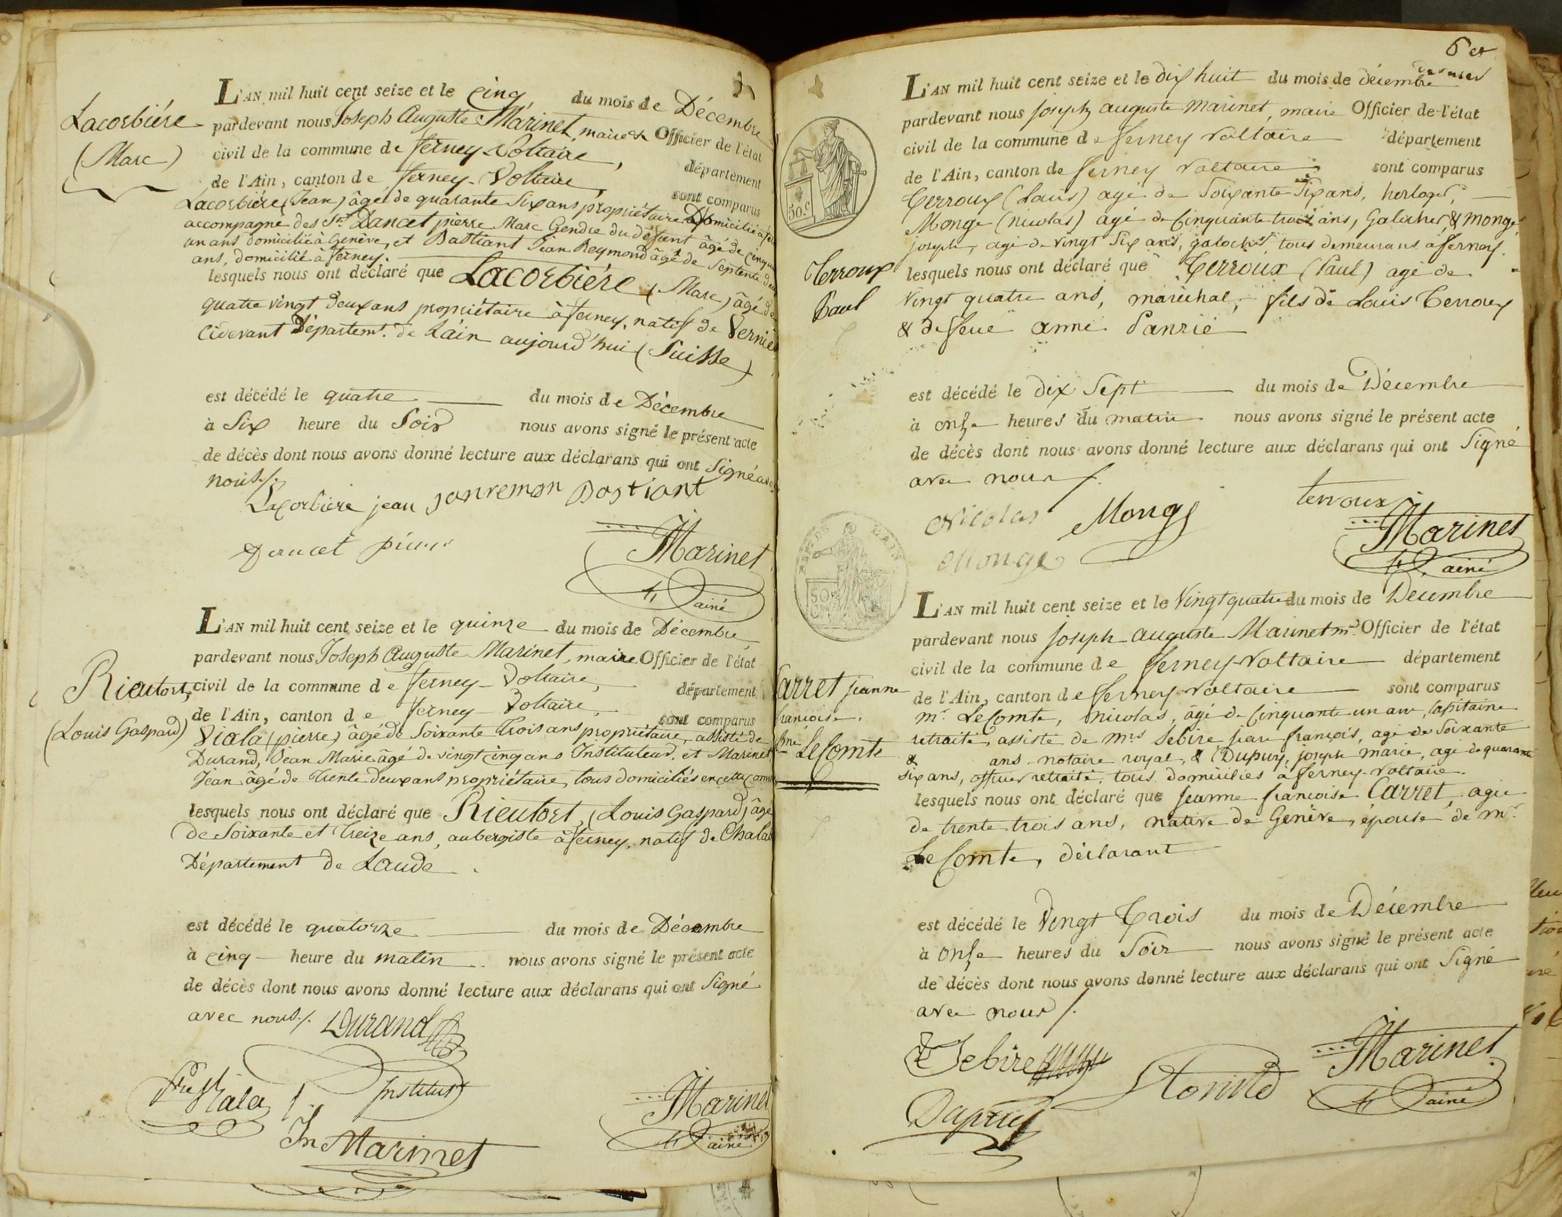 Lacorbière
(Marc)
L'AN mil huit cent seize et le cinq du mois de Décembre
pardevant nous Joseph Auguste Marinet, maire Officier de l'état
civil de la commune de ferney Voltaire, département
de l'Ain, canton de ferney-Voltaire, sont comparus
Lacorbiére (Jean) âgé de quarante Six ans propriétaire Domicilié à
accompagné des Srs Dancet pierre Marc Gendre du défunt âgé de cinqu
un ans domicilié à Genève, et Bastiant Jean Reymond âgé de Septente
ans, domicilié à ferney.
lesquels nous ont déclaré que Lacorbiére (Marc) âgé de
quatre vingt deux ans propriétaire à ferney, natif de Vernier
Cidevant Départemt. de L'ain aujourd'hui (Suisse)
est décédé le quatre du mois de Décembre
à Six heure du Soir nous avons signé le présent acte
de décès dont nous avons donné lecture aux déclarans qui ont Signé avec
nous./.
Lacorbiére jean janremon Bastiant
Dancet pierre
Marinet
ainé
Rieutort,
(Louis Gaspard)
L'AN mil huit cent seize et le quinze du mois de Décembre
pardevant nous Joseph Auguste Marinet, maire Officier de l'état
civil de la commune de ferney-Voltaire, département
de l'Ain, canton de ferney-Voltaire, sont comparus
Viala (pierre) âgé de Soixante trois ans propriétaire, assisté de
Durand, Jean Marie âgé de vingt cinq ans Instituteur, et Marinet
Jean âgé de Trente deux ans propriétaire, tous domiciliés en cette
lesquels nous ont déclaré que Rieutort, (Louis Gaspard) âgé
de Soixante et Treize ans, aubergiste à ferney, natif de Chala
Département de Laude.
est décédé le quatorze du mois de Décembre
à cinq heure du matin. nous avons signé le présent acte
de décès dont nous avons donné lecture aux déclarans qui ont Signé
avec nous./. Durand
Institut
Pre Viala
Jn Marinet
Marinet
ainé
6 et
dernier
L'AN mil huit cent seize et le dix huit du mois de décembre
pardevant nous Joseph auguste Marinet, maire Officier de l'état
civil de la commune de ferney Voltaire département
de l'Ain, canton de ferney Voltaire sont comparus
Terroux (Louis) agé de Soixante Six ans, horloger,
Monge (nicolas) agé de Cinquante trois ans, Galocher & monge
joseph, agé de vingt Six ans, galochr. tous demeurans à ferney.
Terroux
Paul
lesquels nous ont déclaré que Terroux (Paul) agé de
Vingt quatre ans, maréchal, fils de Louis Terroux
& de feue anne Panrié
est décédé le dix Sept du mois de Décembre
à onze heures du matin nous avons signé le présent acte
de décès dont nous avons donné lecture aux déclarans qui ont Signé
avec nous /.
Nicolas Monge terroux
Monge
Marinet
ainé
50 c
AIN
50 c
L'AN mil huit cent seize et le Vingt quatre du mois de Décembre
pardevant nous Joseph auguste Marinet mre. Officier de l'état
civil de la commune de ferney-Voltaire département
de l'Ain, canton de ferney-Voltaire sont comparus
Carret jeanne
francoise,
fme LeComte
mr. LeComte, nicolas, âgé de Cinquante un an, Capitaine
retraité, assisté de mrs Sebire jean françois, age de Soixante
& ans notaire royal, & Dupuy, joseph marie, age de quarante
six ans, officier retraité, tous domiciliés à ferney-Voltaire.
lesquels nous ont déclaré que jeanne francoise Carret, agée
de trente trois ans, native de Genève, épouse de mr.
LeComte, déclarant
est décédé le Vingt Trois du mois de Décembre
à onze heures du Soir nous avons signé le présent acte
de décès dont nous avons donné lecture aux déclarans qui ont Signé
avec nous /.
Sebire
Dupuy
Marinet
ainé